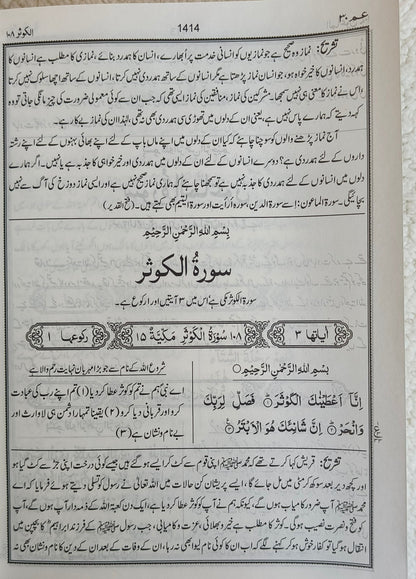 عــم ٣٠
1414
الکوثر ۱۰۸
تشریح: نماز وہ صحیح ہے جو نمازیوں کو انسانی خدمت پر اُبھارے، انسان کا ہمدرد بنائے، نمازی کا مطلب ہے انسانوں کا
ہمدرد، انسانوں کا خیر خواہ ہو، جو انسان نماز پڑھتا ہے مگر انسانوں کے ساتھ ہمدردی نہیں کرتا، انسانوں کے ساتھ اچھا سلوک نہیں کرتا
اس نے نماز کا معنی ہی نہیں سمجھا۔ مشرکین کی نماز، منافقین کی نماز ایسی تھی کہ جب ان سے کوئی معمولی ضرورت کی چیز مانگی جاتی تو وہ
کہہ دیتے کہ ہمارے پاس نہیں ہے، یعنی ان کے دلوں میں تھوڑی سی ہمدردی بھی نہ تھی، لہٰذا ان کی نماز بے کار ہے۔
آج نماز پڑھنے والوں کو سوچنا چاہئے کہ کیا ان کے دلوں میں اپنے ماں باپ کے لئے اپنے بھائی بہنوں کے لئے اپنے رشتہ
داروں کے لئے ہمدردی ہے؟ دوسرے انسانوں کے لئے ان کے دلوں میں ہمدردی اور خیر خواہی کا جذبہ ہے یا نہیں۔ اگر ہمارے
دلوں میں انسانوں کے لئے ہمدردی کا جذبہ نہیں ہے تو سمجھنا چاہئے کہ ہماری نماز صحیح نہیں ہے اور ایسی نماز دوزخ کی آگ سے نہیں
بچائیگی۔ سورۃ الماعون: اسے سورۃ الدین، سورۃ أرأیت اور سورۃ الیتیم بھی کہتے ہیں۔ (فتح القدیر)
بِسْمِ اللهِ الرَّحْمٰنِ الرَّحِيْمِ
سورۃُ الکوثر
سورۃ الکوثر مکی ہے اس میں ۳ آیتیں اور ا رکوع ہے۔
اٰیاتها ۳
۱۰۸ سُوْرَةُ الْكَوْثَرِ مَكِّيَّةٌ ۱۵
رکوعها ۱
بِسْمِ اللهِ الرَّحْمٰنِ الرَّحِيْمِ○
اِنَّاۤ اَعْطَيْنٰكَ الْكَوْثَرَ○ فَصَلِّ لِرَبِّكَ
وَانْحَرْ○ اِنَّ شَانِئَكَ هُوَ الْاَبْتَرُ○
شروع اللہ کے نام سے جو بڑا مہربان نہایت رحم والا ہے
اے نبی ہم نے تم کو کوثر عطا کر دیا (۱) تم اپنے رب کی عبادت
کرو اور قربانی دیا کرو (۲) یقیناً تمہارا دشمن ہی لا وارث اور
بے نام و نشان ہے (۳)
تشریح: قریش کہا کرتے تھے کہ محمد ﷺ اپنی قوم سے کٹ کر ایسے ہو گئے ہیں جیسے کوئی درخت اپنی جڑ سے کٹ گیا ہو
اور کچھ دیر بعد سوکھ کر مٹی میں مل جائے گا، ایسے پریشان کن حالات میں اللہ تعالیٰ نے رسول کو تسلی دیتے ہوئے فرمایا کہ اے
محمد ﷺ آپ ضرور کامیاب ہوں گے، کیونکہ ہم نے آپ کو کوثر عطا کر دیا ہے، ایک دن کعبۃ اللہ کے ذمہ دار آپ ہوں گے، آپ
کو فتح و نصرت نصیب ہوگی۔ کوثر کا مطلب ہے خیر و بھلائی، عزت و کامیابی، جب رسول ﷺ کے فرزند ابراہیمؓ کا بچپن میں
انتقال ہو گیا تو کفار خوش ہو کر کہنے لگے کہ اب ان کا کوئی نام لیوا بھی نہ رہا، ان کے وفات کے بعد ان کے دین کا نام و نشان بھی نہ